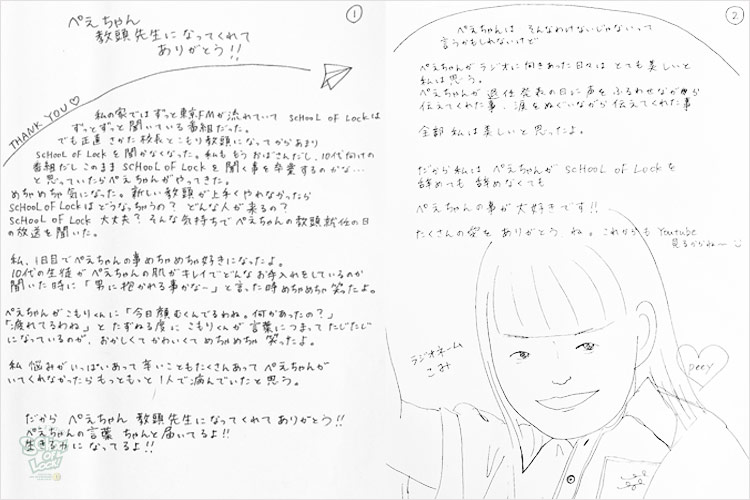 ①
ぺえちゃん
教頭先生になってくれて
ありがとう!!
THANK YOU♡
私の家ではずっと東京FMが流れていて SCHOOL OF LOCKは
ずっとずっと聞いている番組だった。
でも正直 さかた校長とこもり教頭になってからあまり
SCHOOL OF LOCKを聞かなくなった。私も もうおばさんだし、10代向けの
番組だし このまま SCHOOL OF LOCKを聞く事を卒業するのかな…
と思っていたらぺえちゃんがやってきた。
めちゃめちゃ気になった。新しい教頭が上手くやれなかったら
SCHOOL OF LOCKはどうなっちゃうの? どんな人が来るの?
SCHOOL OF LOCK 大丈夫? そんな気持ちでぺえちゃんの教頭就任の日
の放送を聞いた。
私、1日目でぺえちゃんの事めちゃめちゃ好きになったよ。
10代の生徒がぺえちゃんの肌がキレイでどんなお手入れをしているのか
聞いた時に「男に抱かれる事かな~」と言った時めちゃめちゃ笑ったよ。
ぺえちゃんがこもりくんに「今日顔むくんでるわね。何かあったの?」
「疲れてるわね」とたずねる度にこもりくんが言葉につまってたじたじ
になっているのが、おかしくてかわいくてめちゃめちゃ 笑ったよ。
私 悩みがいっぱいあって辛いこともたくさんあって ぺえちゃんが
いてくれなかったらもっともっと1人で病んでいたと思う。
だから ぺえちゃん 教頭先生になってくれてありがとう!!
ぺえちゃんの言葉 ちゃんと届いてるよ!!
生きる力になってるよ!!
SCHOOL OF LOCK!
②
ぺえちゃんは そんなわけないじゃないって
言うかもしれないけど
ぺえちゃんがラジオに向きあった日々は とても美しいと
私は思う。
ぺえちゃんが退任発表の日に声をふるわせながら
伝えてくれた事、涙をぬぐいながら伝えてくれた事
全部 私は美しいと思ったよ。
だから私は ぺえちゃんが SCHOOL OF LOCKを
辞めても 辞めなくても
ぺえちゃんの事が大好きです!!
たくさんの愛を ありがとう、ね。これからも Youtube
見るからね~
ラジオネーム
こみ
peey